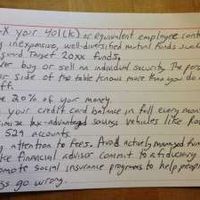 X your 401(k) or equivalent employee cont
inexpensive, well-diversified mutual funds such
Target 20xx funds.
buy or sell an individual security. The pers
side of the table knows more than you do
ff.
20% of your money.
your credit card balance in full every mont
tax-advantaged savings vehicles like Ro
529 accounts.
attention to fees. Avoid actively managed fun
financial advisor commit to a fiduciary
promote social insurance programs to help peop
go wrong.